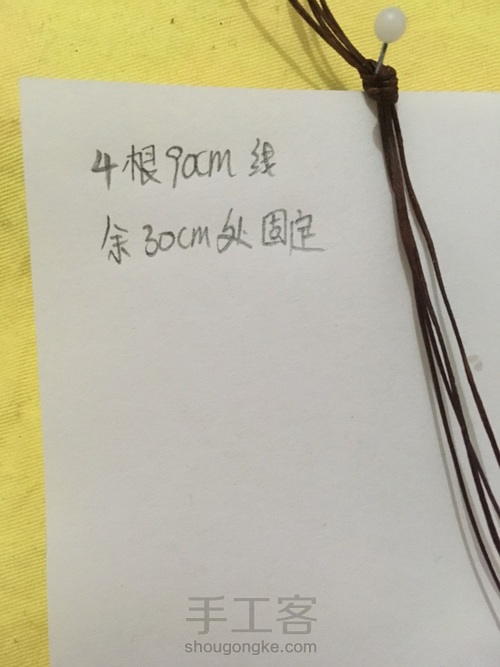 4根90cm线
余30cm处固定
手工客
shougongke.com